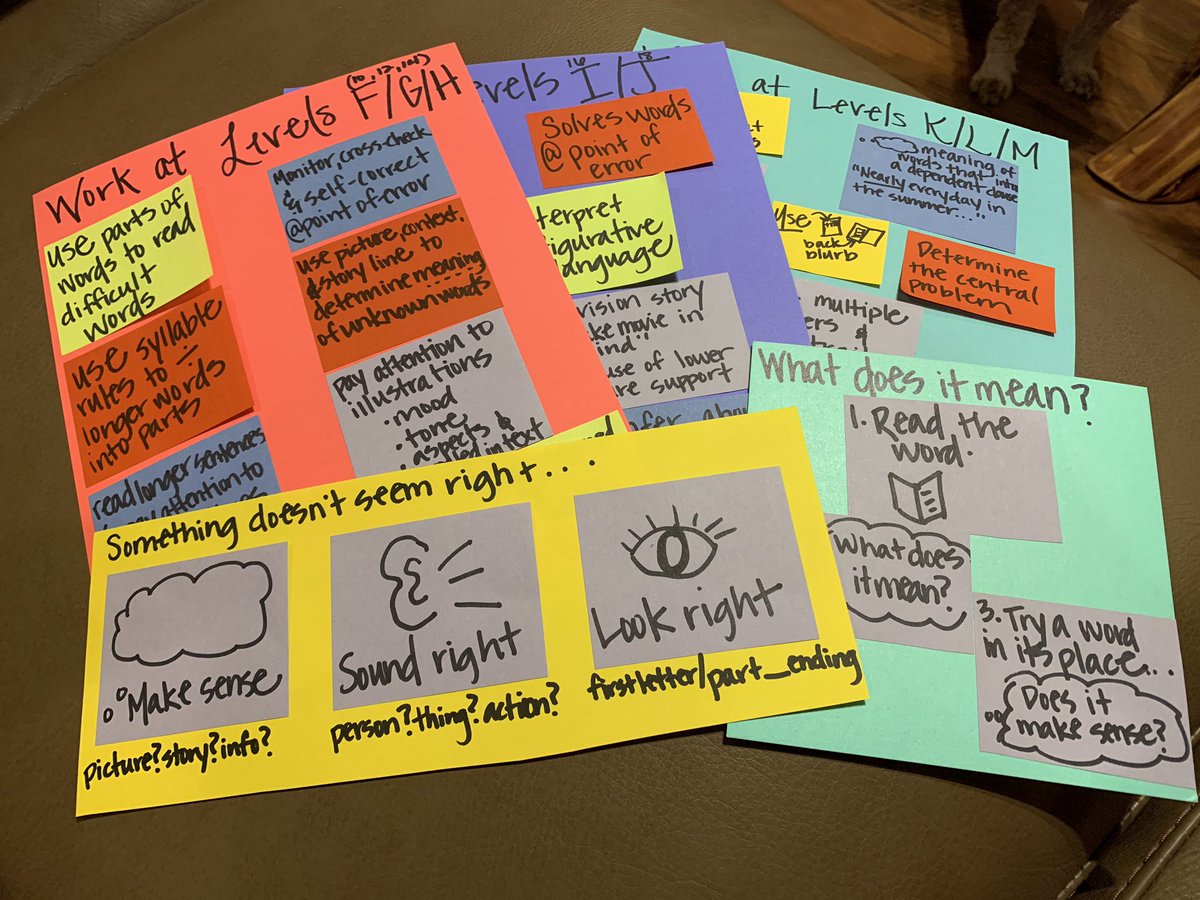 Work at Levels F/G/H
(10, 12, 14)
use parts of
words to read
difficult
words
use syllable
rules to –
longer words
into parts
read longer sentences
attention to
Monitor, cross-check
& self-correct
@point of error
use picture, context,
& story line to
determine meaning
of unknown words
pay attention to
illustrations
• mood
• tone
• aspects &
in text
evels I/J
16 18
Solves words
@ point of
error
terpret
igurative
anguage
vision story
ke movie in
ind"
use of lower
re support
fer about
at Levels K/L/M
meaning of
words that intro
a dependent clause
"Nearly everyday in
the summer..."
use
back
blurb
Determine
the central
problem
multiple
ers &
What does it mean?
1. Read the
word.
What does
it mean?
3. Try a word
in its place...
Does it
make sense?
Something doesn't seem right...
Make sense
picture? story? info?
Sound right
person? thing? action?
Look right
first letter/part_ending